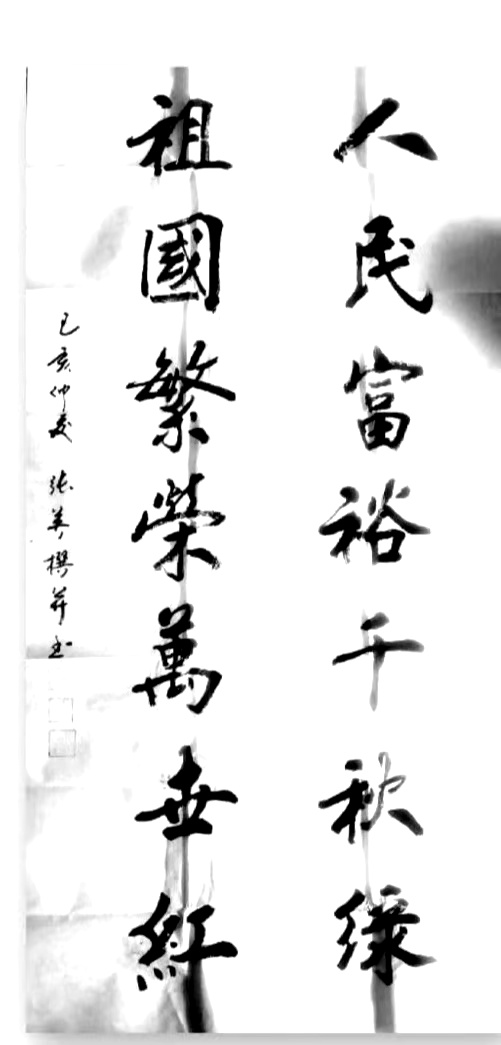 人民富裕千秋緑
祖國繁榮萬世紅
己亥仲夏 張美撰并书